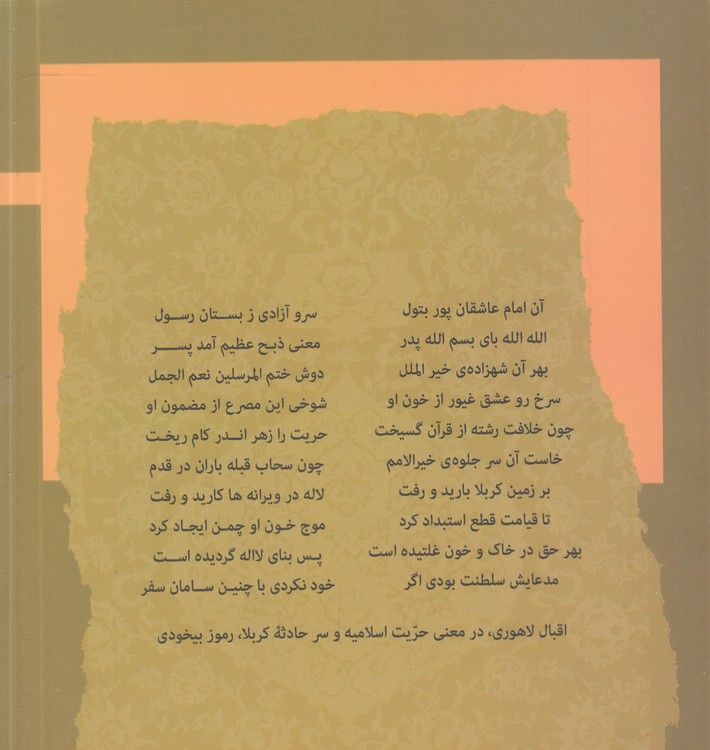 آن امام عاشقان پور بتول سرو آزادی ز بستان رسول
الله الله بای بسم الله پدر معنی ذبح عظیم آمد پسر
بهر آن شهزاده‌ی خیر الملل دوش ختم المرسلین نعم الجمل
سرخ رو عشق غیور از خون او شوخی این مصرع از مضمون او
چون خلافت رشته از قرآن گسیخت حریت را زهر اندر کام ریخت
خاست آن سر جلوه‌ی خیرالامم چون سحاب قبله باران در قدم
بر زمین کربلا بارید و رفت لاله در ویرانه ها کارید و رفت
تا قیامت قطع استبداد کرد موج خون او چمن ایجاد کرد
بهر حق در خاک و خون غلتیده است پس بنای لااله گردیده است
مدعایش سلطنت بودی اگر خود نکردی با چنین سامان سفر
اقبال لاهوری، در معنی حرّیت اسلامیه و سر حادثهٔ کربلا، رموز بیخودی